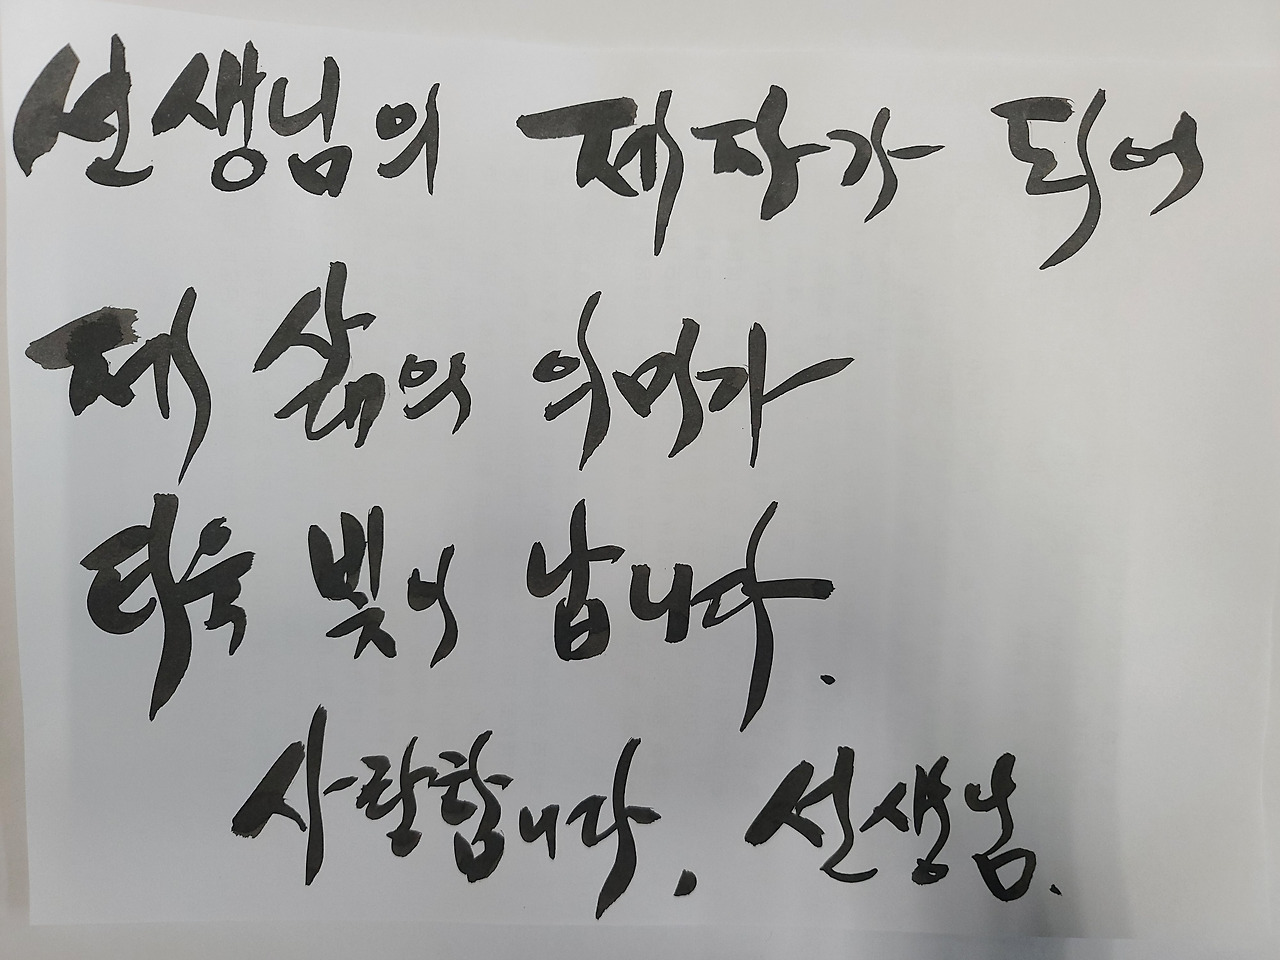 선생님의 제자가 되어
제 삶의 의미가
더욱 빛이 납니다.
사랑합니다. 선생님.